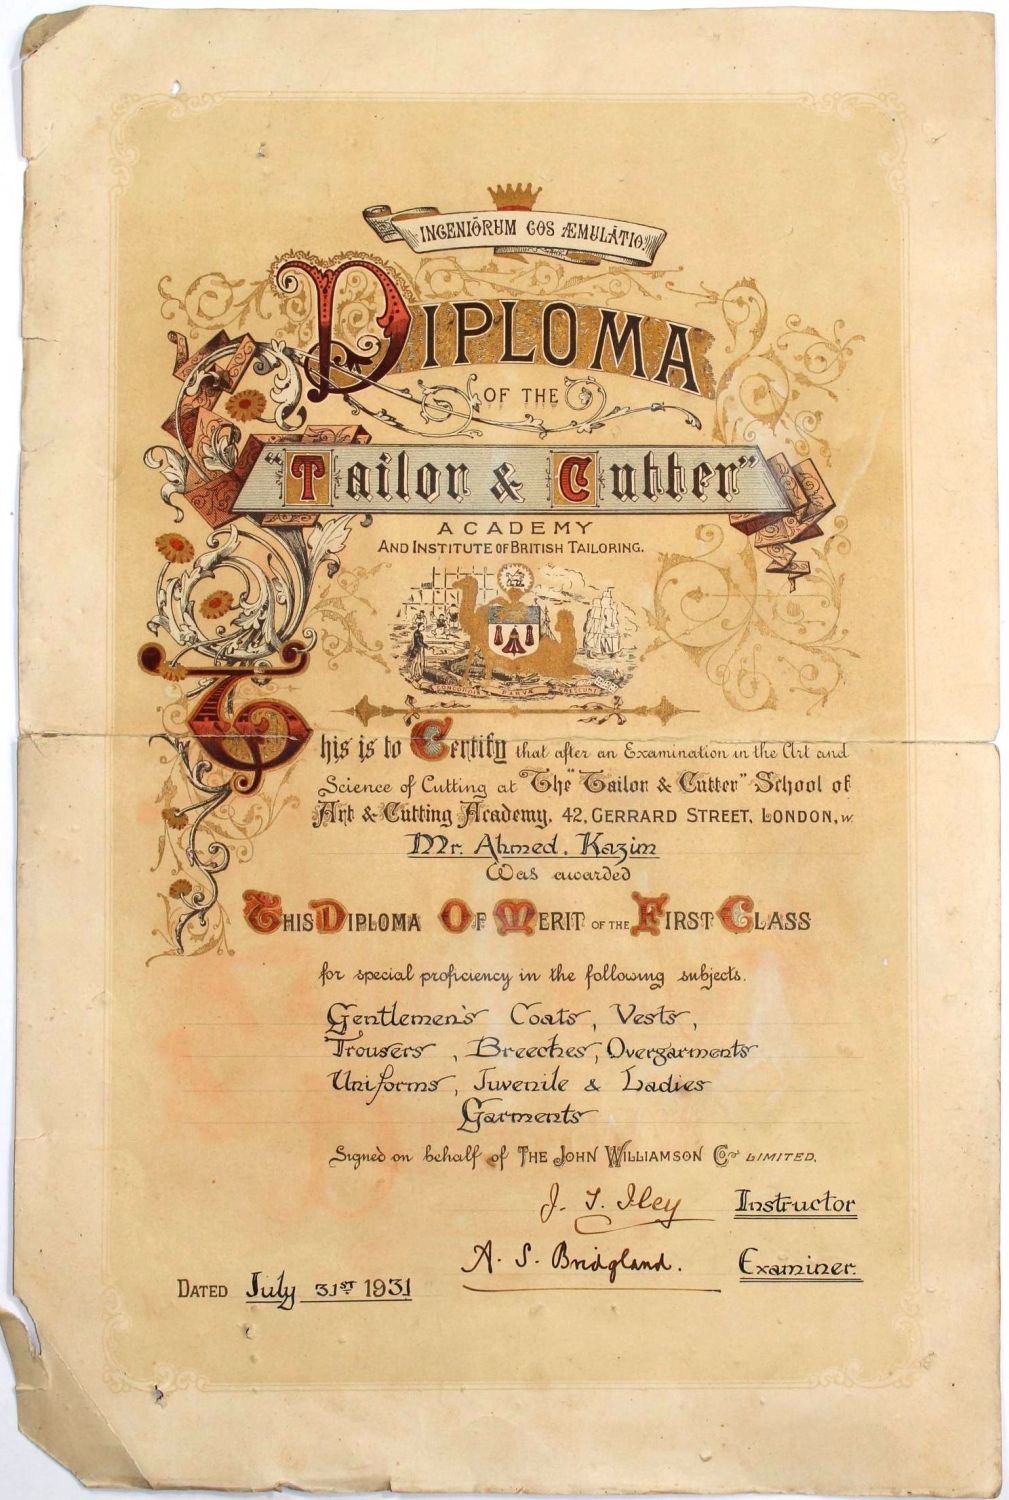 INGENIŌRUM COS ÆMULĀTIO.
DIPLOMA
OF THE
"Tailor & Cutter"
ACADEMY
AND INSTITUTE OF BRITISH TAILORING.
CONCORDIA PARVÆ CRESCUNT
This is to Certify that after an Examination in the Art and
Science of Cutting at The "Tailor & Cutter" School of
Art & Cutting Academy, 42, GERRARD STREET, LONDON, W.
Mr. Ahmed. Kazim
Was awarded
THIS DIPLOMA OF MERIT OF THE FIRST CLASS
for special proficiency in the following subjects.
Gentlemen's Coats, Vests,
Trousers, Breeches, Overgarments
Uniforms, Juvenile & Ladies
Garments
Signed on behalf of THE JOHN WILLIAMSON Coy LIMITED.
J. T. Iley Instructor
A. S. Bridgland. Examiner.
DATED July 31ST 1931